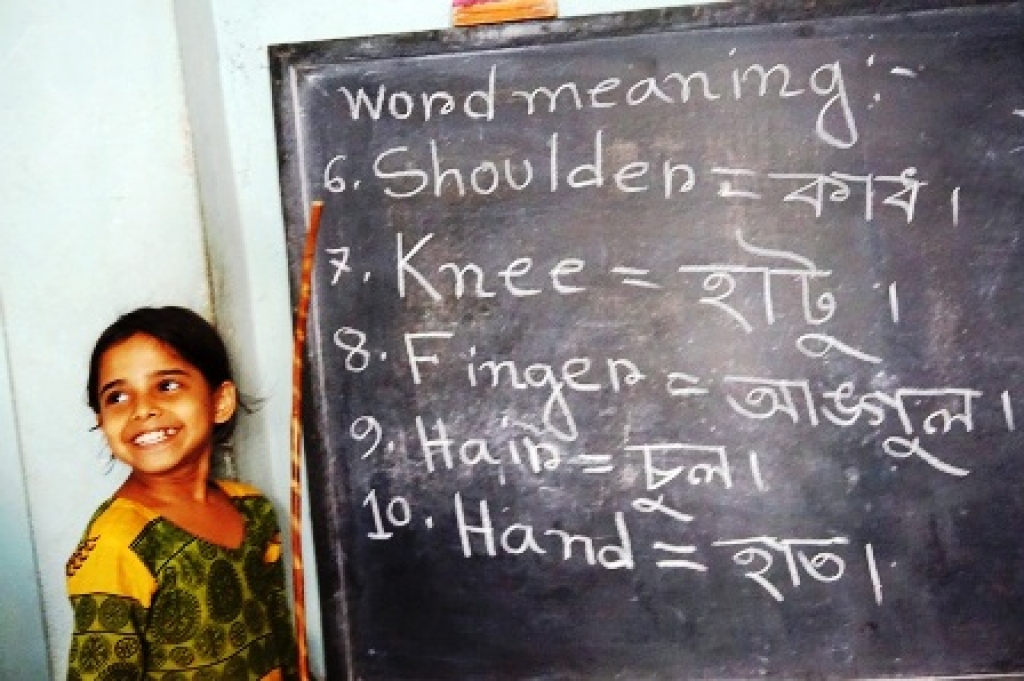 Word meaning:-
6. Shoulder = কাধ।
7. Knee = হাটু।
8. Finger = আঙ্গুল।
9. Hair = চুল।
10. Hand = হাত।